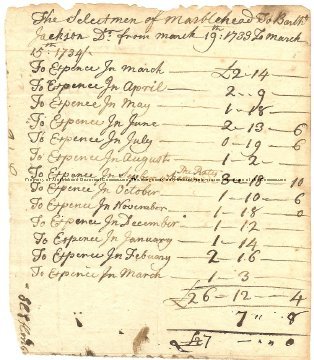 The Selectmen of Marblehead To Barth:
Jackson Dr. from march 19th: 1733 To march
15th: 1734/.
To Expence In march — £2 - 14
To Expence In April — 2 - 9
To Expence In May — 1 - 18
To Expence In June — 2 - 13 - 6
To Expence In July — 0 - 19 - 6
To Expence In August — 1 - 2
To Expence In The Rates 3 - 18 - 10
To Expence In October — 1 - 10 - 6
To Expence In November — 1 - 18 - 0
To Expence In December — 1 - 12
To Expence In January — 1 - 14
To Expence In Febuary — 2 - 16
To Expence In March — 1 - 3
£26 - 12 - 4
7 " 8
£27 - " - 0